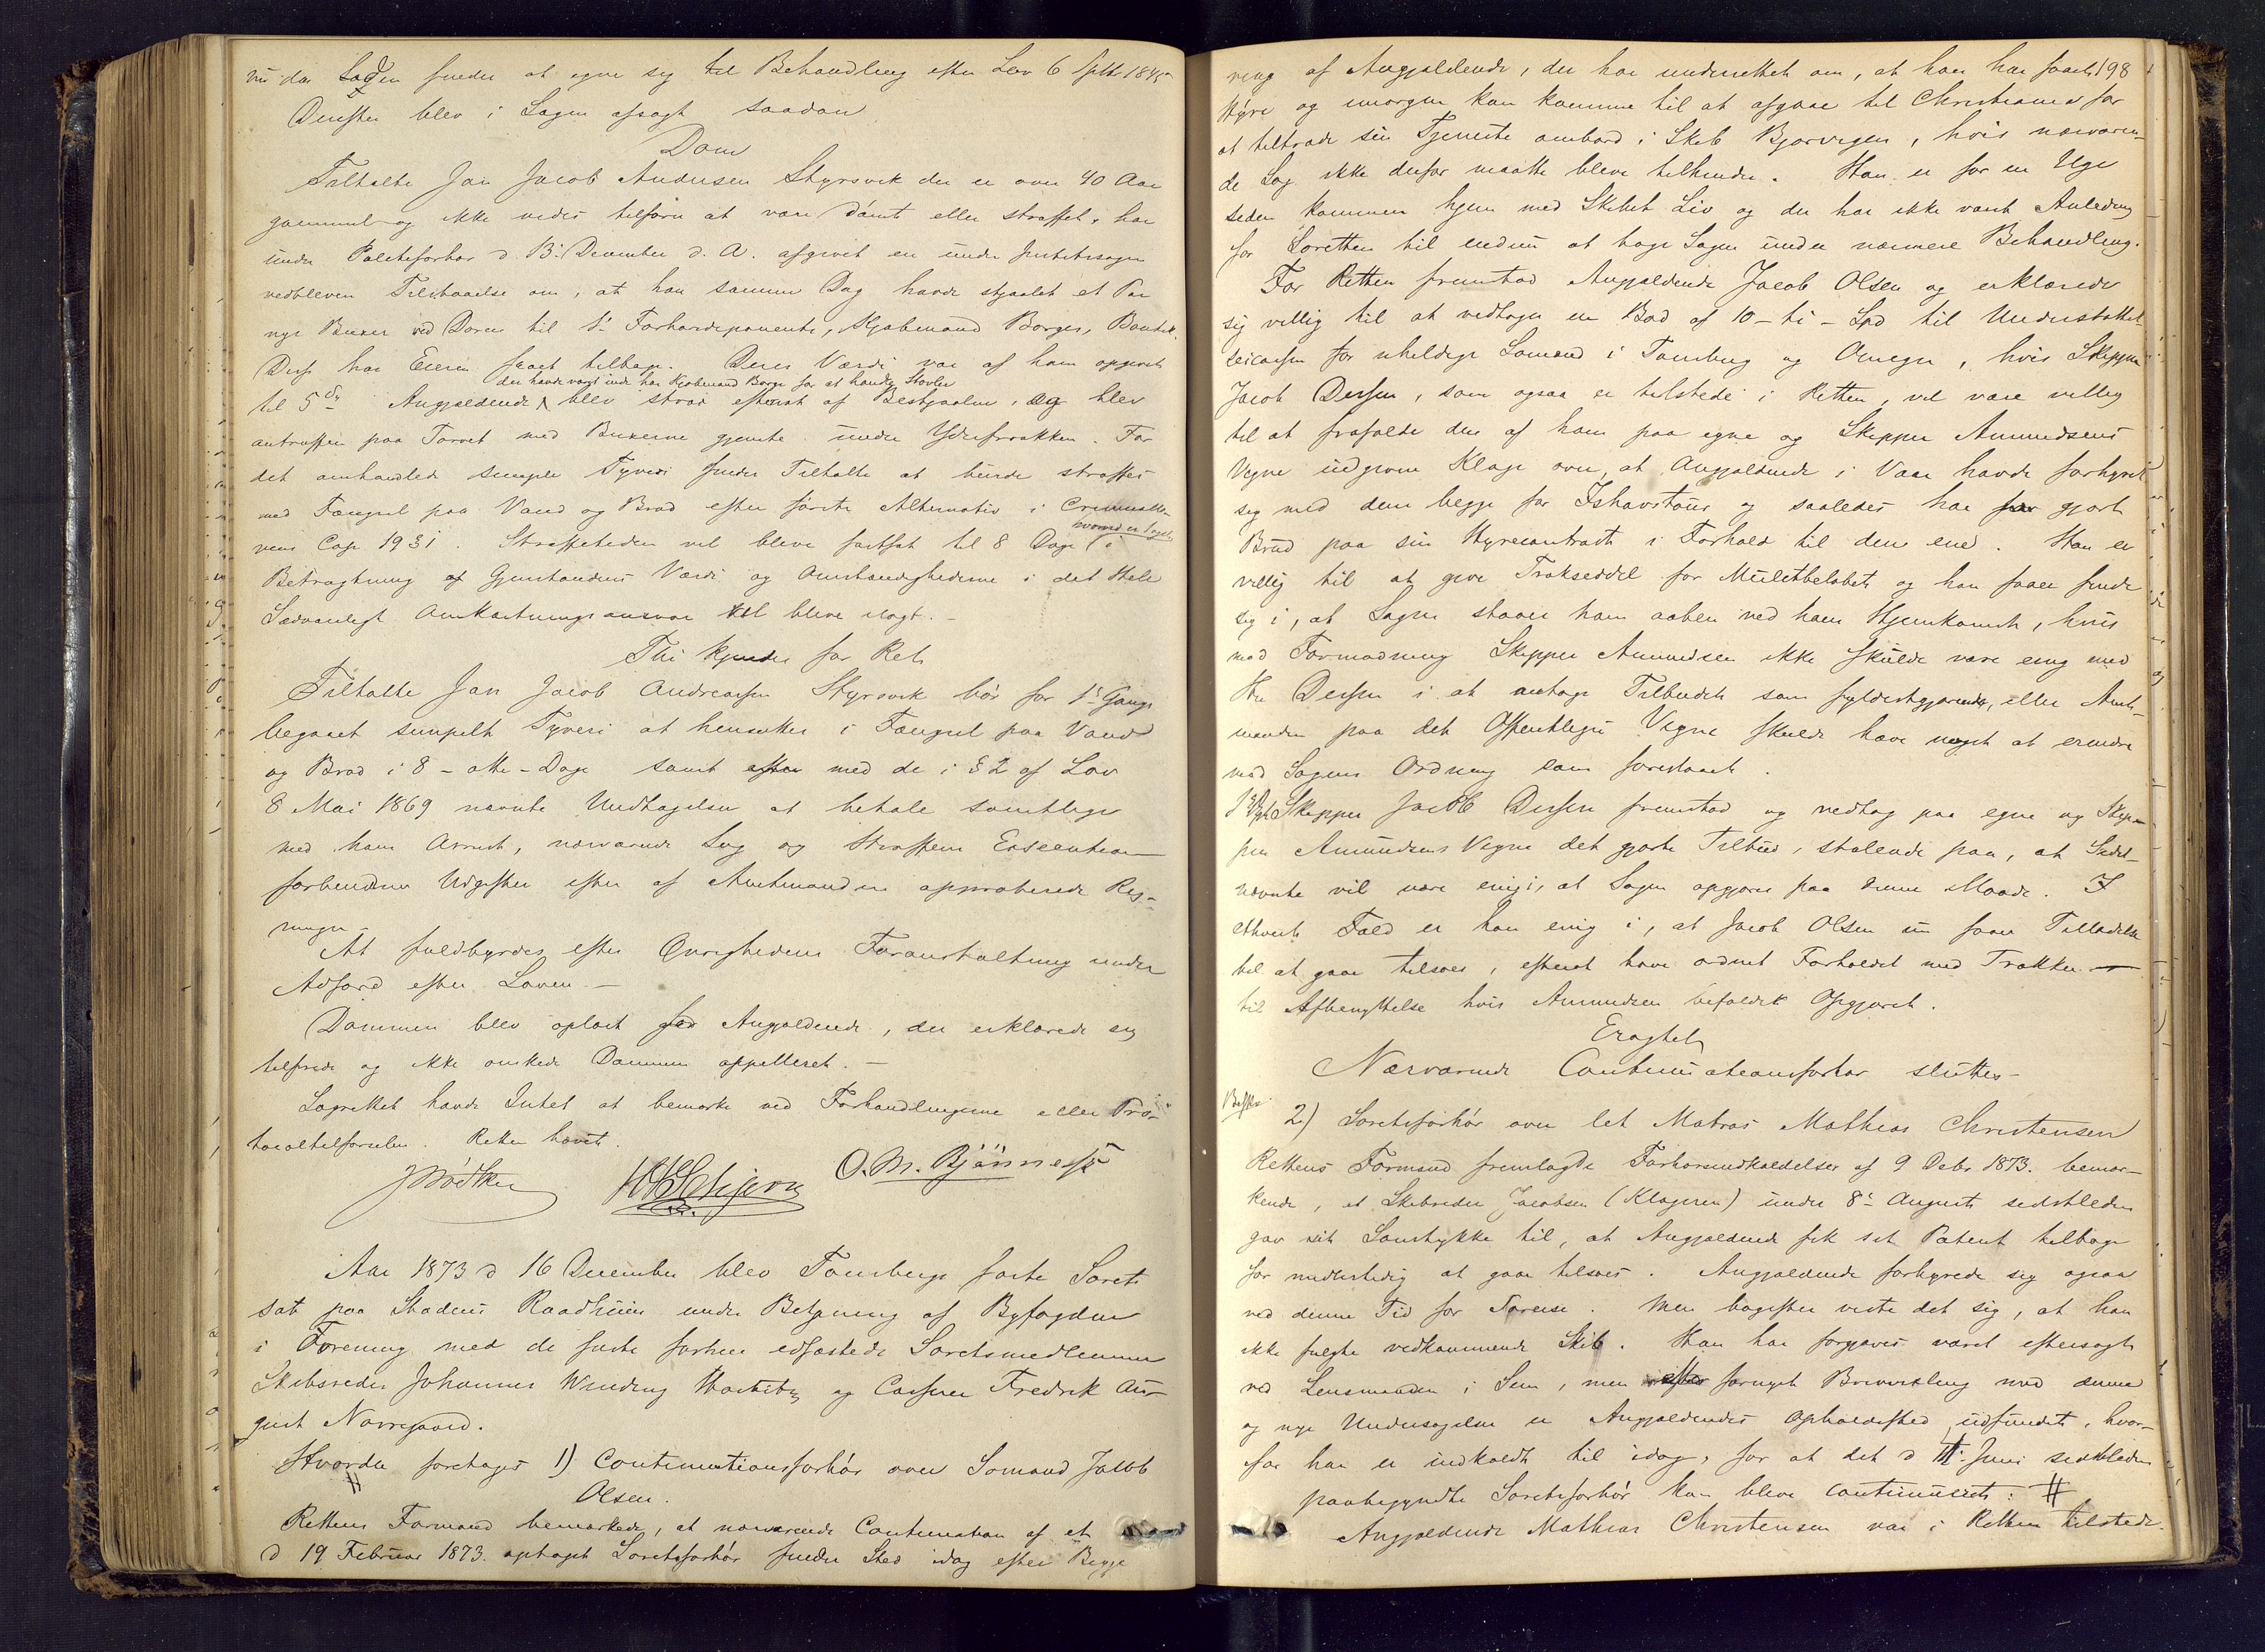 nu da Sagen findes at egne sig til Behandling efter Lov 6 Septbr 1845
Derefter blev i Sagen afsagt saadan
Dom
Tiltalte Jan Jacob Andersen Styrsvik der er over 40 Aar
gammel og ikke vides tilforn at være dømt eller straffet, har
under Politiforhør d. 13. December d. A. afgivet en under Justitssagen
vedbleven Tilstaaelse om, at han samme Dag havde stjaalet et Par
nye Buxer ved Døren til 1ste Forhørsdeponente, Kjøbmand Borges, Boutik.
Disse har Eieren faaet tilbage. Deres Værdi var af ham opgivet
der havde været inde hos Kjøbmand Borge for at handle Støvler
til 5 Angjældende blev strax eftersat af Bestjaalne, og blev
antruffen paa Torvet med Buxerne gjemte under Yderfrakken. For
det omhandlede simple Tyveri findes Tiltalte at burde straffes
med Fængsel paa Vand og Brød efter første Alternativ i Criminallo-
vens Cap 19 § 1. Straffetiden vil blive fastsat til 8 Dage i
Betragtning af Gjenstandens Værdi og Omstændighederne i det Hele
Sædvanligt Omkostningsansvar vil blive ilagt. -
Thi kjendes for Ret
Tiltalte Jan Jacob Andreassen Styrsvik bør for 1ste Gangs
begaaet simpelt Tyveri at hensættes i Fængsel paa Vand
og Brød i 8 - otte - Dage samt med de i § 2 af Lov
8 Mai 1869 nævnte Undtagelser at betale samtlige
med hans Arrest, nærværende Sag og Straffens Execution
forbundne Udgifter efter af Amtmanden approberede Reg-
ninger
At fuldbyrdes efter Øvrighedens Foranstaltning under
Adfærd efter Loven. -
Dommen blev oplæst for Angjældende, der erklærede sig
tilfreds og ikke ønskede Dommen appelleret. -
Lagrettet havde Intet at bemærke ved Forhandlingerne eller Pro-
tocoltilførselen. Retten hævet.
O. M. Bjønness
Aar 1873 d 16 December blev Tønsbergs faste Søret
sat paa Stadens Raadhuus under Betjening af Byfogden
i Forening med de faste forhen edfæstede Søretsmedlemmer
Skibsreder Johannes Winding og Casserer Fredrik Au-
gust Nørregaard.
Hvorda foretages 1) Continuationsforhør over Sømand Jacob
Olsen.
Rettens Formand bemærkede, at nærværende Continuation af et
d 19 Februar 1873 optaget Søretsforhør finder Sted idag efter Begjæ-
198
ring af Angjældende, der har underrettet om, at han har faaet
Hyre og imorgen kan komme til at afgaae til Christiania for
at tiltræde sin Tjeneste ombord i Skib Bjørvigen, hvis nærværen-
de Sag ikke derfor maatte blive tilhinder. Han er for en Uge
siden kommen hjem med Skibet Liv og der har ikke været Anledning
for Søretten til endnu at tage Sagen under nærmere Behandling.
For Retten fremstod Angjældende Jacob Olsen og erklærede
sig villig til at vedtage en Bod af 10 - ti - Spd til Understøttel-
sescassen for uheldige Sømænd i Tønsberg og Omegn, hvis Skipper
Jacob Dessen, som ogsaa er tilstede i Retten, vil være villig
til at frafalde den af ham paa egne og Skipper Amundsens
Vegne udgivne Klage over, at Angjældende i Vaar havde forhyret
sig med dem begge for Ishavstour og saaledes har gjort
Brud paa sin Hyrecontract i Forhold til den ene. Han er
villig til at give Trækseddel for Mulctbeløbet og han faaer finde
sig i, at Sagen staaer ham aaben ved hans Hjemkomst, hvis
mod Formodning Skipper Amundsen ikke skulde være enig med
Hr Dessen i at antage Tilbudet som fyldestgjørende, eller Amt-
manden paa det Offentliges Vegne skulde have noget at erindre
mod Sagens Ordning som forestaaet.
Skipper Jacob Dessen fremstod og vedtog paa egne og Skip-
per Amundsens Vegne det gjorte Tilbud, stolende paa, at Sidst-
nævnte vil være enig i, at Sagen opgjøres paa denne Maade. I
ethvert Fald er han enig i, at Jacob Olsen nu faaer Tilladelse
til at gaae tilsøes, efterat have ordnet Forholdet med Trækket
til Afbenyttelse hvis Amundsen bifalder Opgjøret.
Eragtet
Nærværende Continuationsforhør sluttes -
2) Søretsforhør over let Matros Mathias Christensen
Rettens Formand fremlagde Forhørsindkaldelser af 9 Debr 1873. bemær-
kende, at Skibsreder Jacobsen (Klageren) under 8de August sidstleden
gav sit Samtykke til, at Angjældende fik sit Patent tilbage
for midlertidig at gaae tilsøes. Angjældende forhyrede sig ogsaa
ved denne Tid for Søreise. Men bagefter viste det sig, at han
ikke fulgte vedkommende Skib. Han har forgjæves været eftersøgt
ved Lensmanden i Sem, men efter fornyet Brevvexling med denne
og nye Undersøgelser er Angjældendes Opholdssted udfundet, hvor-
for han er indkaldt til idag, for at det d Juni sidstleden
paabegyndte Søretsforhør kan blive continueret: #
Angjældende Mathias Christensen var i Retten tilstede.